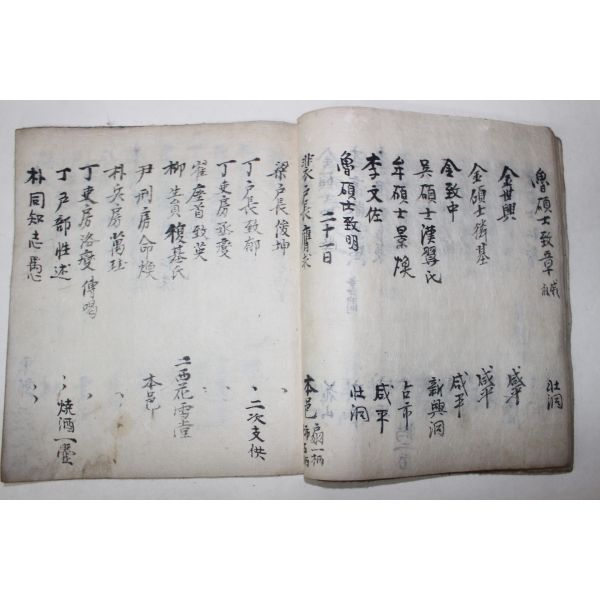 魯碩士致章 咸 牡洞
金世興 咸平
金碩士 基 咸平
金致中 咸平
吳碩士漢 氏 新興洞
牟碩士景煥 占市
李文佐 咸平
魯碩士致明 牡洞
二十一日
裴戶長 求 本邑 扇一柄
梁戶長俊坤 〃
丁戶長致郁 〃二次支供
丁吏房丞 〃
崔座首致英 〃
柳生員 基氏 二西花雪堂
尹刑房命煥 本邑
朴兵房萬 〃
丁吏房洛 傳喝 〃
丁戶部性述 〃燒酒一壺
朴同知志 〃